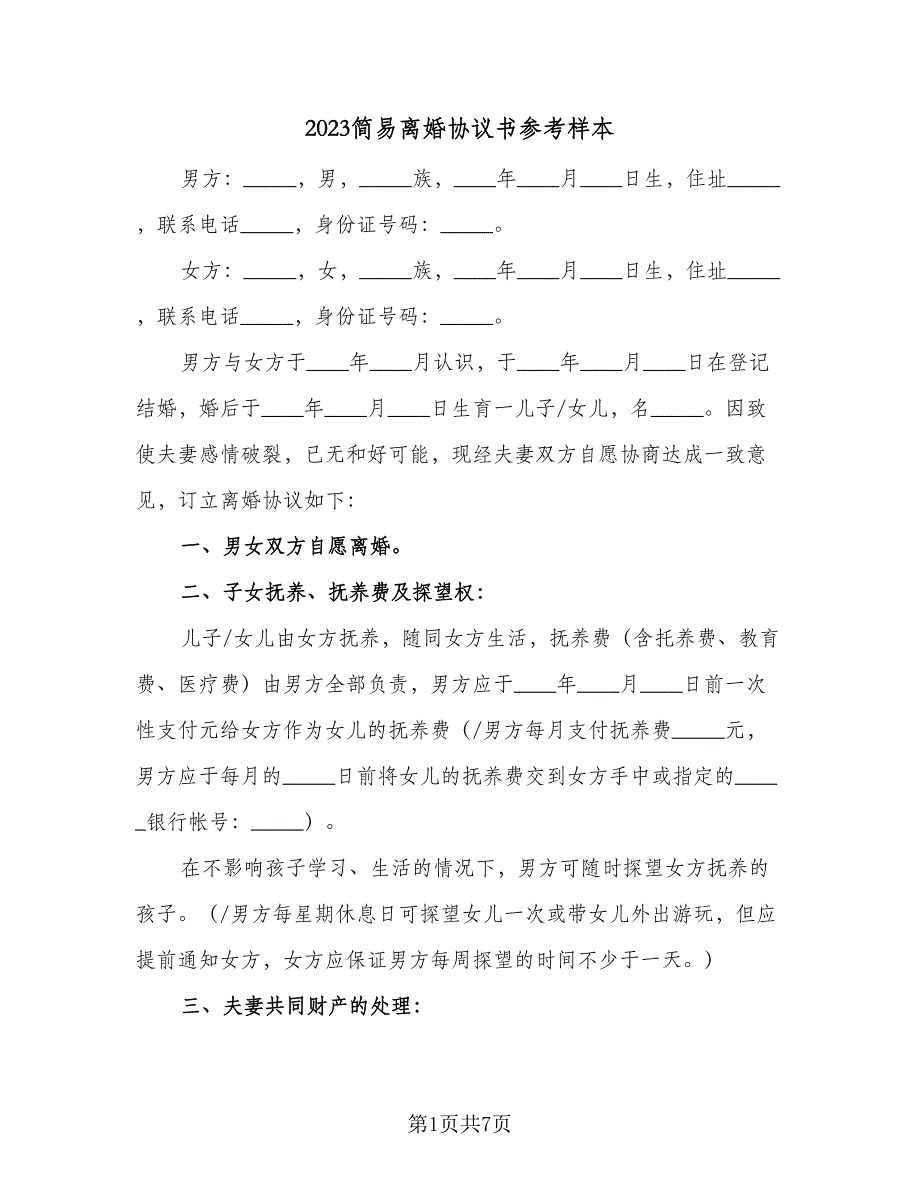 2023简易离婚协议书参考样本
男方：_____，男，_____族，____年____月____日生，住址_____
，联系电话_____，身份证号码：_____。
女方：_____，女，_____族，____年____月____日生，住址_____
，联系电话_____，身份证号码：_____。
男方与女方于____年____月认识，于____年____月____日在登记
结婚，婚后于____年____月____日生育一儿子/女儿，名_____。因致
使夫妻感情破裂，已无和好可能，现经夫妻双方自愿协商达成一致意
见，订立离婚协议如下：
一、男女双方自愿离婚。
二、子女抚养、抚养费及探望权：
儿子/女儿由女方抚养，随同女方生活，抚养费（含托养费、教育
费、医疗费）由男方全部负责，男方应于____年____月____日前一次
性支付元给女方作为女儿的抚养费（/男方每月支付抚养费_____元，
男方应于每月的_____日前将女儿的抚养费交到女方手中或指定的____
_银行帐号：_____）。
在不影响孩子学习、生活的情况下，男方可随时探望女方抚养的
孩子。（/男方每星期休息日可探望女儿一次或带女儿外出游玩，但应
提前通知女方，女方应保证男方每周探望的时间不少于一天。）
三、夫妻共同财产的处理：
第1页共7页